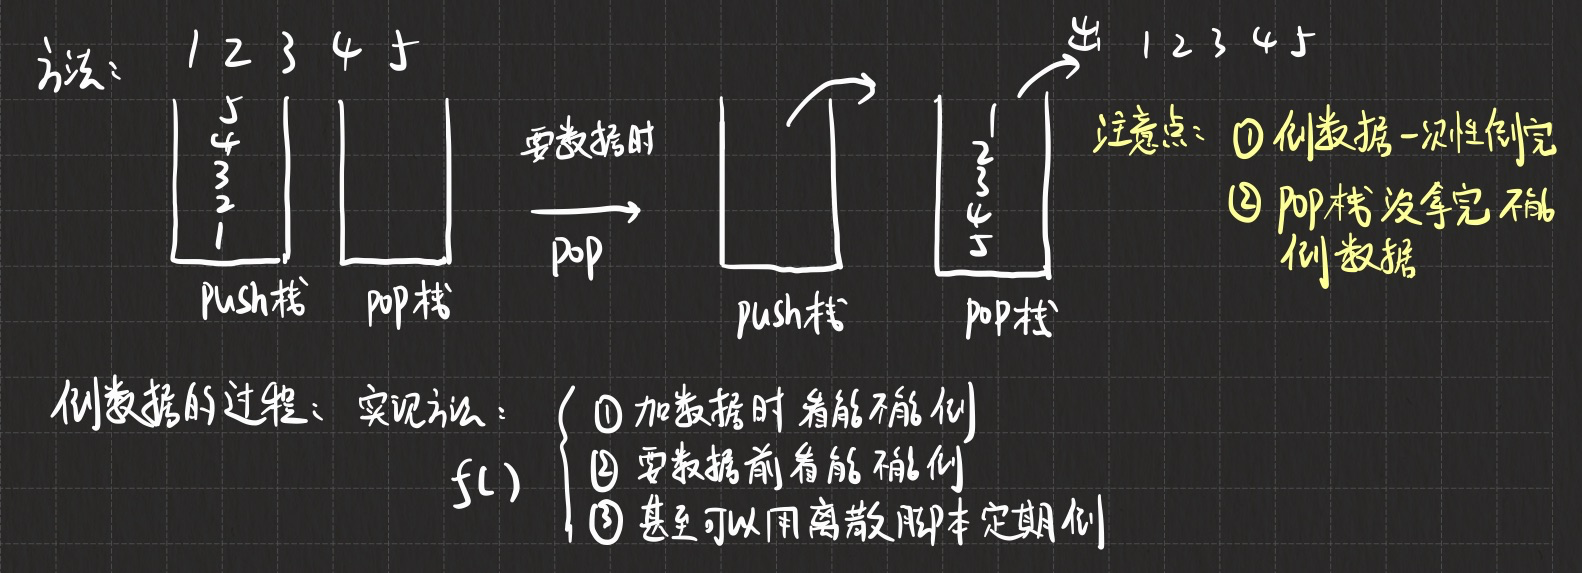 方法：
1 2 3 4 5
5
4
3
2
1
push栈
pop栈
要数据时
pop
push栈
出 1 2 3 4 5
1
2
3
4
5
pop栈
注意点：① 倒数据一次性倒完
② pop栈没拿完不能
倒数据
倒数据的过程：实现方法：
f()
① 加数据时看能不能倒
② 要数据前看能不能倒
③ 甚至可以用离散脚本定期倒